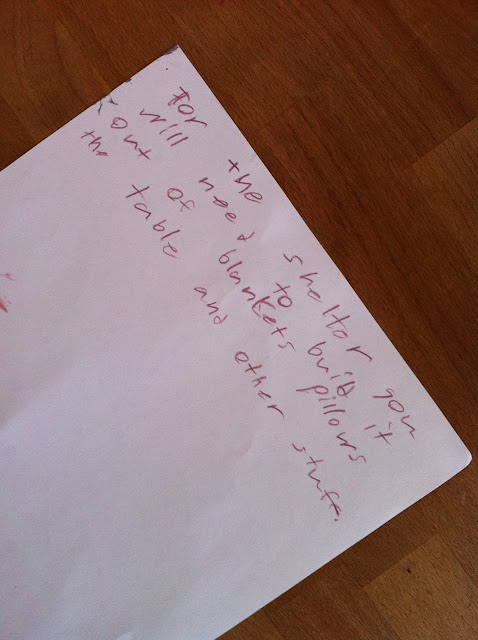 For the sheltor you
will need to build it
out of blankets pillows
the table and other stuff.